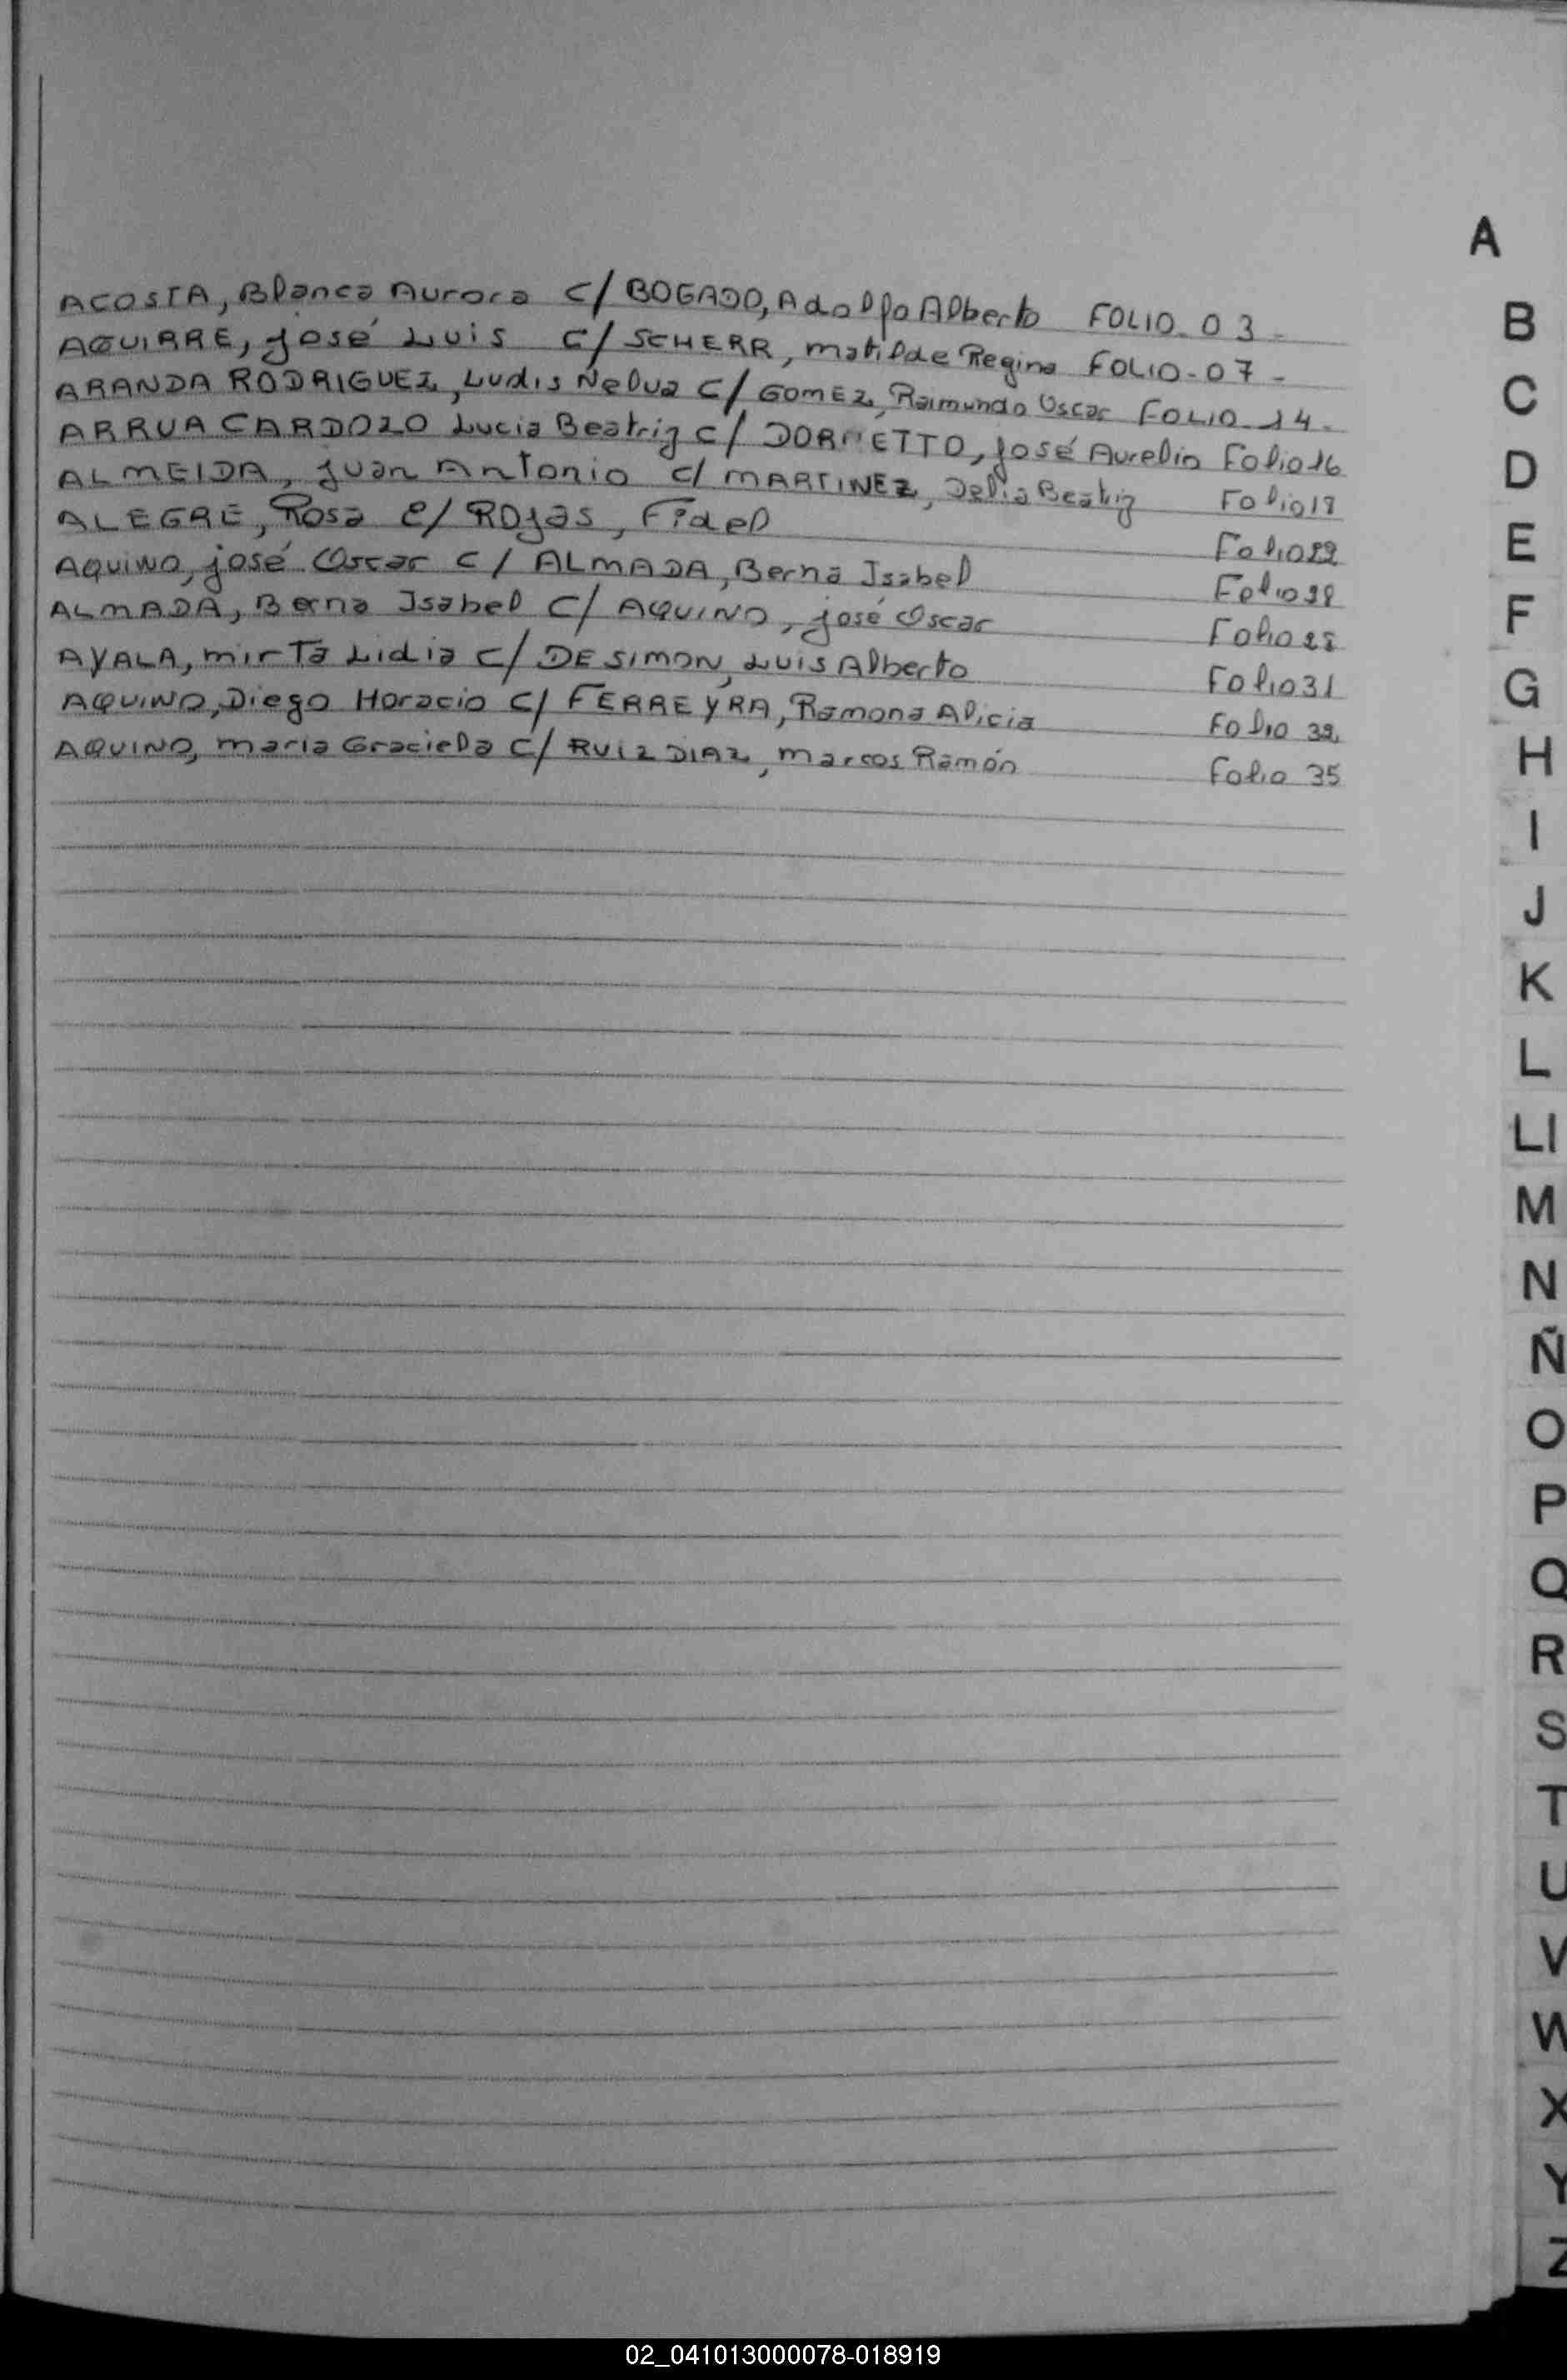 A
ACOSTA, Blanca Aurora C/ BOGADO, Adolfo Alberto FOLIO-03-
AGUIRRE, José Luis C/ SCHERR, Matilde Regina FOLIO-07-
ARANDA RODRIGUEZ, Ludis Nelva C/ GOMEZ, Raimundo Oscar FOLIO-14-
ARRUA CARDOZO Lucia Beatriz C/ DORMETTO, José Aurelio Folio 16
ALMEIDA, Juan Antonio C/ MARTINEZ, Delia Beatriz Folio
ALEGRE, Rosa C/ ROJAS, Fidel Folio
AQUINO, José Oscar C/ ALMADA, Berna Isabel Folio
ALMADA, Berna Isabel C/ AQUINO, José Oscar Folio 28
AYALA, Mirta Lidia C/ DE SIMON, Luis Alberto Folio 31
AQUINO, Diego Horacio C/ FERREYRA, Ramona Alicia Folio 32
AQUINO, Maria Graciela C/ RUIZ DIAZ, Marcos Ramón Folio 35
B
C
D
E
F
G
H
I
J
K
L
Ll
M
N
Ñ
O
P
Q
R
S
T
U
V
W
X
Y
Z
02_041013000078-018919